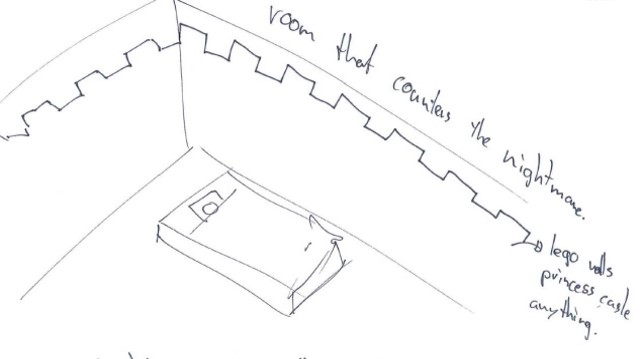 room that counters the nightmare.
lego walls
princess castle
anything.